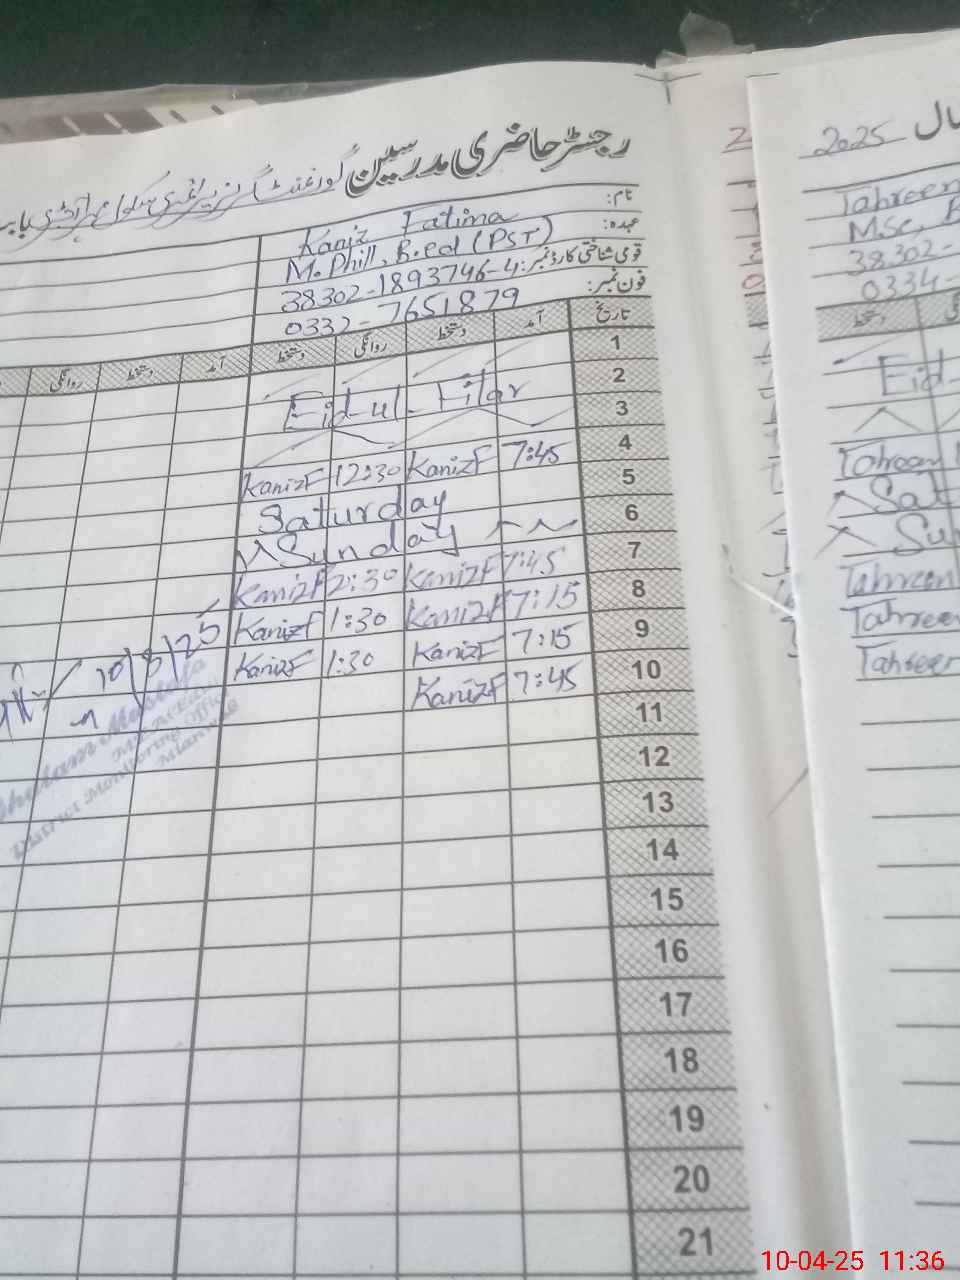 رجسٹر حاضری مدرسین گورنمنٹ گرلز پرائمری سکول
سال 2025
نام: Kaniz Fatima
عہدہ: M. Phill, B.ed (PST)
قومی شناختی کارڈ نمبر: 38302-1893746-4
فون نمبر: 0332-7651879
تاریخ آمد دستخط روانگی دستخط آمد دستخط روانگی
1
2 Eid-ul-Fitar
3
4 7:45 KanizF 12:30 KanizF
5 Saturday
6 Sunday
7 7:45 KanizF 2:30 KanizF
8 7:15 KanizF 1:30 KanizF
9 7:15 KanizF 1:30 KanizF
10 7:45 KanizF
11
12
13
14
15
16
17
18
19
20
21
Ghulam Mustafa
District Monitoring Officer
Mianwali
Tahreem
MSc, B
38302-
0334-
دستخط
Eid-
Tahreem
Sat
Su
Tahreem
Tahreem
Tahreem
10-04-25 11:36